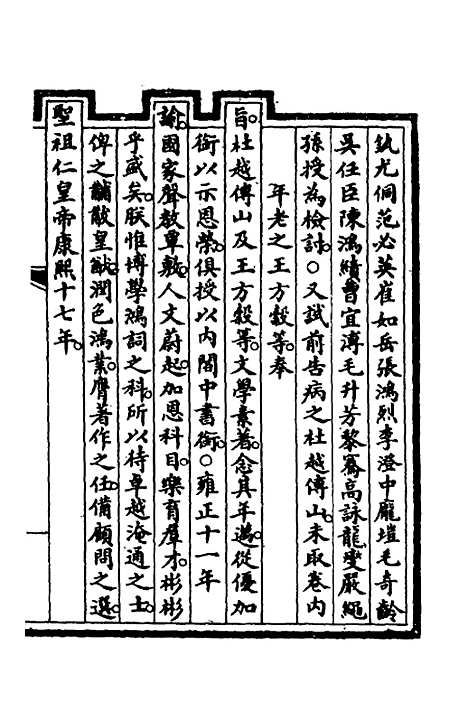 釚尤侗范必英崔如岳張鴻烈李澄中龐塏毛奇齡
吳任臣陳鴻績曹宜溥毛升芳黎騫高詠龍燮嚴繩
孫授為檢討○又試前告病之杜越傅山未取卷內
年老之王方穀等奉
旨杜越傅山及王方穀等文學素著念其年邁從優加
銜以示恩榮俱授以內閣中書銜○雍正十一年
諭國家聲教覃敷人文蔚起加恩科目樂育羣才彬彬
乎盛矣朕惟博學鴻詞之科所以待卓越淹通之士
俾之黼黻皇猷潤色鴻業膺著作之任備顧問之選
聖祖仁皇帝康熙十七年